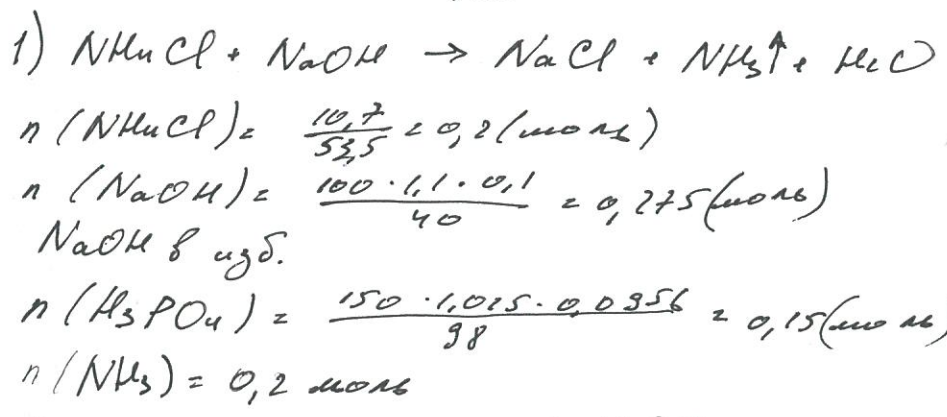 1) NH₄Cl + NaOH → NaCl + NH₃↑ + H₂O
n (NH₄Cl) = 10,7/53,5 = 0,2 (моль)
n (NaOH) = 100 · 1,1 · 0,1/40 = 0,275 (моль)
NaOH в изб.
n (H₃PO₄) = 150 · 1,025 · 0,0956/98 = 0,15 (моль)
n (NH₃) = 0,2 моль